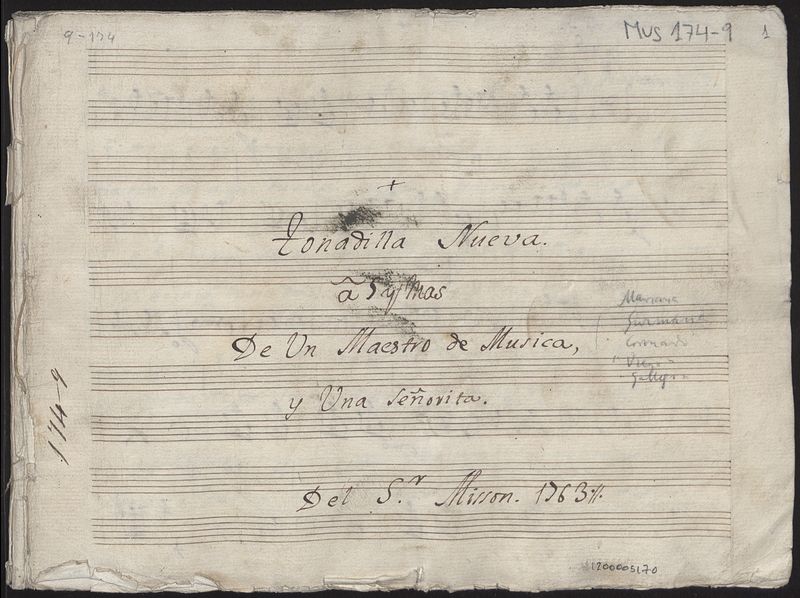 9-174
Mus 174-9
1
+
Tonadilla Nueva.
â 5 y mas
De Un Maestro de Musica,
y Una Señorita.
Del S.r Misson. 1763.
Mariana
Guzmana
Coronado
174-9
1200005170